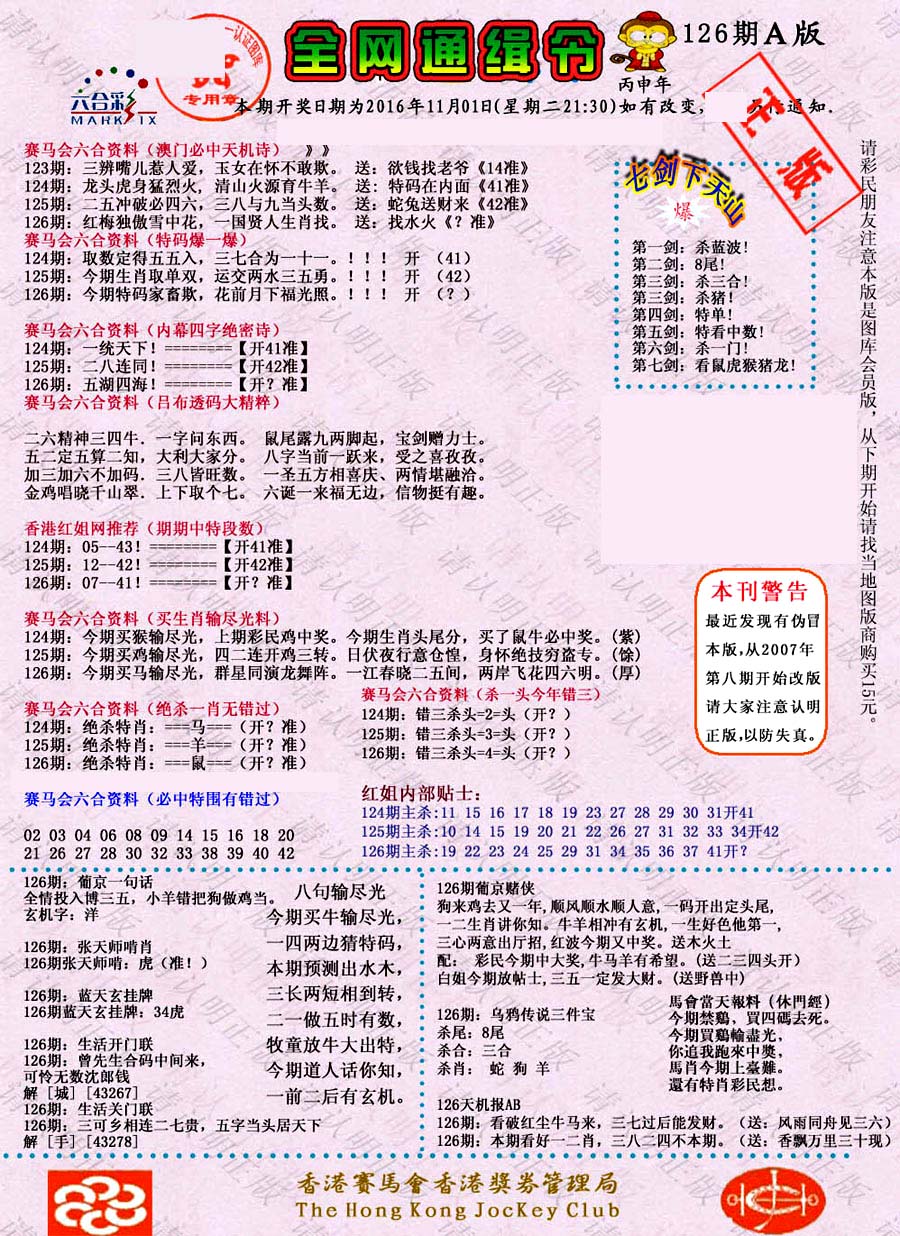 全网通缉令
126期A版
丙申年
一认证图库
专用章
六合彩
MARK SIX
本期开奖日期为2016年11月01日(星期二21:30)如有改变,
通知.
正版
请彩民朋友注意本版是图库会员版，从下期开始请找当地图版商购买15元。
赛马会六合资料（澳门必中天机诗）　》》
123期：三辨嘴儿惹人爱，玉女在怀不敢欺。 送：欲钱找老爷《14准》
124期：龙头虎身猛烈火，清山火源育牛羊。 送：特码在内面《41准》
125期：二五冲破必四六，三八与九当头数。 送：蛇兔送财来《42准》
126期：红梅独傲雪中花，一国贤人生肖找。 送：找水火《？准》
赛马会六合资料（特码爆一爆）
124期：取数定得五五入，三七合为一十一。！！！ 开 （41）
125期：今期生肖取单双，运交两水三五勇。！！！ 开 （42）
126期：今期特码家畜欺，花前月下福光照。！！！ 开 （？）
七剑下天山
爆
第一剑：杀蓝波！
第二剑：8尾！
第三剑：杀三合！
第三剑：杀猪！
第四剑：特单！
第五剑：特看中数！
第六剑：杀一门！
第七剑：看鼠虎猴猪龙！
赛马会六合资料（内幕四字绝密诗）
124期：一统天下！========【开41准】
125期：二八连同！========【开42准】
126期：五湖四海！========【开？准】
赛马会六合资料（吕布透码大精粹）
二六精神三四牛．一字问东西。 鼠尾露九两脚起，宝剑赠力士。
五二定五算二知，大利大家分。 八字当前一跃来，受之喜孜孜。
加三加六不加码．三八皆旺数。 一圣五方相喜庆、两情堪融洽。
金鸡唱晓千山翠．上下取个七。 六诞一来福无边，信物挺有趣。
香港红姐网推荐（期期中特段数）
124期：05--43！========【开41准】
125期：12--42！========【开42准】
126期：07--41！========【开？准】
本刊警告
最近发现有伪冒
本版,从2007年
第八期开始改版
请大家注意认明
正版,以防失真。
赛马会六合资料（买生肖输尽光料）
124期：今期买猴输尽光，上期彩民鸡中奖。今期生肖头尾分，买了鼠牛必中奖。(紫)
125期：今期买鸡输尽光，四二连开鸡三转。日伏夜行意仓惶，身怀绝技穷盗专。(馀)
126期：今期买马输尽光，群星同演龙舞阵。一江春晓二五间，两岸飞花四六明。(厚)
赛马会六合资料（绝杀一肖无错过）
124期：绝杀特肖：===马===（开？准）
125期：绝杀特肖：===羊===（开？准）
126期：绝杀特肖：===鼠===（开？准）
赛马会六合资料（杀一头今年错三）
124期：错三杀头=2=头（开？）
125期：错三杀头=3=头（开？）
126期：错三杀头=4=头（开？）
赛马会六合资料（必中特围有错过）
02 03 04 06 08 09 14 15 16 18 20
21 26 27 28 30 32 33 38 39 40 42
红姐内部贴士：
124期主杀:11 15 16 17 18 19 23 27 28 29 30 31开41
125期主杀:10 14 15 19 20 21 22 26 27 31 32 33 34开42
126期主杀:19 22 23 24 25 29 31 34 35 36 37 41开？
126期：葡京一句话
全情投入博三五，小羊错把狗做鸡当。
玄机字：洋
126期：张天师啃肖
126期张天师啃：虎（准！）
126期：蓝天玄挂牌
126期蓝天玄挂牌：34虎
126期：生活开门联
126期：曾先生合码中间来，
可怜无数沈郎钱
解 [城] [43267]
126期：生活关门联
126期：三可乡相连二七贵，五字当头居天下
解 [手] [43278]
八句输尽光
今期买牛输尽光，
一四两边猜特码，
本期预测出水木，
三长两短相到转，
二一做五时有数，
牧童放牛大出特，
今期道人话你知，
一前二后有玄机。
126期葡京赌侠
狗来鸡去又一年,顺风顺水顺人意,一码开出定头尾,
一二生肖讲你知。牛羊相冲有玄机,一生好色他第一,
三心两意出厅招,红波今期又中奖。送木火土
配： 彩民今期中大奖,牛马羊有希望。(送二三四头开)
白姐今期放帖士,三五一定发大财。(送野兽中)
126期：乌鸦传说三件宝
杀尾：8尾
杀合：三合
杀肖： 蛇 狗 羊
馬會當天報料（休門經）
今期禁鷄、買四碼去死。
今期買鷄輸盡光，
你追我跑來中獎，
馬肖今期上臺難。
還有特肖彩民想。
126天机报AB
126期：看破红尘牛马来，三七过后能发财。（送：风雨同舟见三六）
126期：本期看好一二肖，三八二四不本期。（送：香飘万里三十现）
香港賽馬會香港獎券管理局
The Hong Kong JocKey Club